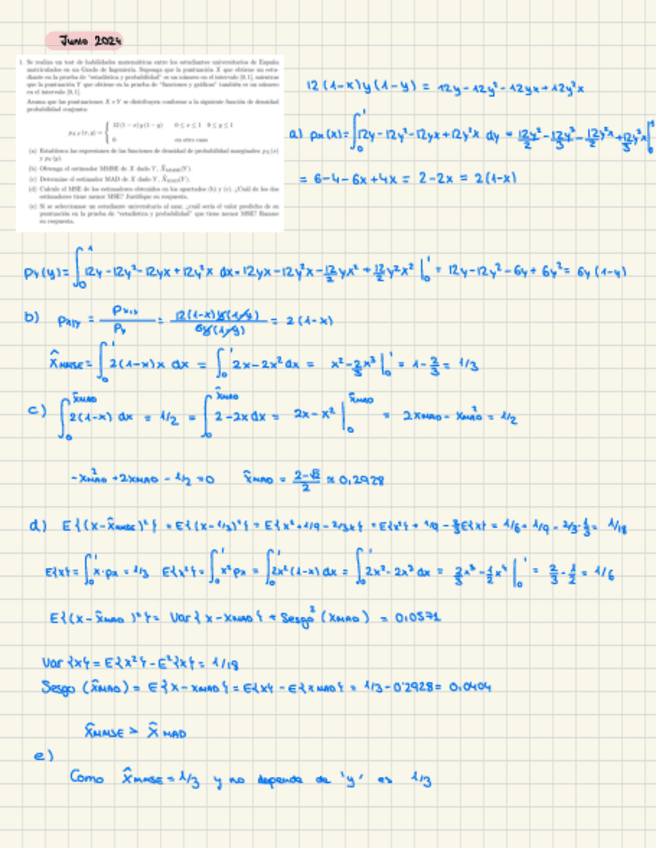 Junio 2024
1. Se realiza un test de habilidades matemáticas entre los estudiantes universitarios de España
matriculados en un Grado de Ingeniería. Suponga que la puntuación X que obtiene un estu-
diante en la prueba de "estadística y probabilidad" es un número en el intervalo [0, 1], mientras
que la puntuación Y que obtiene en la prueba de "funciones y gráficas" también es un número
en el intervalo [0, 1].
Asuma que las puntuaciones X e Y se distribuyen conforme a la siguiente función de densidad
probabilidad conjunta:
12(1 − x)y(1 − y) 0 ≤ x ≤ 1 0 ≤ y ≤ 1
0 en otro caso
(a) Establezca las expresiones de las funciones de densidad de probabilidad marginales pX(x)
y pY(y).
(b) Obtenga el estimador MMSE de X dado Y, X̂MMSE(Y).
(c) Determine el estimador MAD de X dado Y, X̂MAD(Y).
(d) Calcule el MSE de los estimadores obtenidos en los apartados (b) y (c). ¿Cuál de los dos
estimadores tiene menor MSE? Justifique su respuesta.
(e) Si se seleccionase un estudiante universitario al azar, ¿cuál sería el valor predicho de su
puntuación en la prueba de "estadística y probabilidad" que tiene menor MSE? Razone
su respuesta.
12(1-x)y(1-y) = 12y-12y²-12yx+12y²x
a) px(x)=∫₀¹ 12y-12y²-12yx+12y²x dy = 12y²/2-12y³/3-12y²x/2+12y³x/3 |₀¹
= 6-4-6x+4x = 2-2x = 2(1-x)
py(y)=∫₀¹ 12y-12y²-12yx+12y²x dx = 12yx-12y²x-12/2 yx²+12/2 y²x² |₀¹ = 12y-12y²-6y+6y² = 6y(1-y)
b) px|y = px,y/py = 12(1-x)y(1-y)/6y(1-y) = 2(1-x)
x̂MMSE=∫₀¹ 2(1-x)x dx = ∫₀¹ 2x-2x² dx = x²-2/3x³ |₀¹ = 1-2/3 = 1/3
c) ∫₀^x̂MAD 2(1-x) dx = 1/2 = ∫₀^x̂MAD 2-2x dx = 2x-x² |₀^x̂MAD = 2xMAD-xMAD² = 1/2
-xMAD²+2xMAD-1/2=0 x̂MAD = 2-√2/2 ≈ 0,2928
d) E{(x-x̂MMSE)²} = E{(x-1/3)²} = E{x²+1/9-2/3x} = E{x²}+1/9-2/3E{x} = 1/6+1/9-2/3·1/3 = 1/18
E{x}=∫₀¹ x·px = 1/3 E{x²}=∫₀¹ x²px = ∫₀¹ 2x²(1-x) dx = ∫₀¹ 2x²-2x³ dx = 2/3x³-1/2x⁴ |₀¹ = 2/3-1/2 = 1/6
E{(x-x̂MAD)²} = Var{x-xMAD} + Sesgo²(xMAD) = 0,0571
Var{x} = E{x²}-E²{x} = 1/18
Sesgo (x̂MAD) = E{x-xMAD} = E{x}-E{xMAD} = 1/3-0'2928 = 0,0404
x̂MMSE > x̂MAD
e)
Como x̂MMSE=1/3 y no depende de 'y' es 1/3